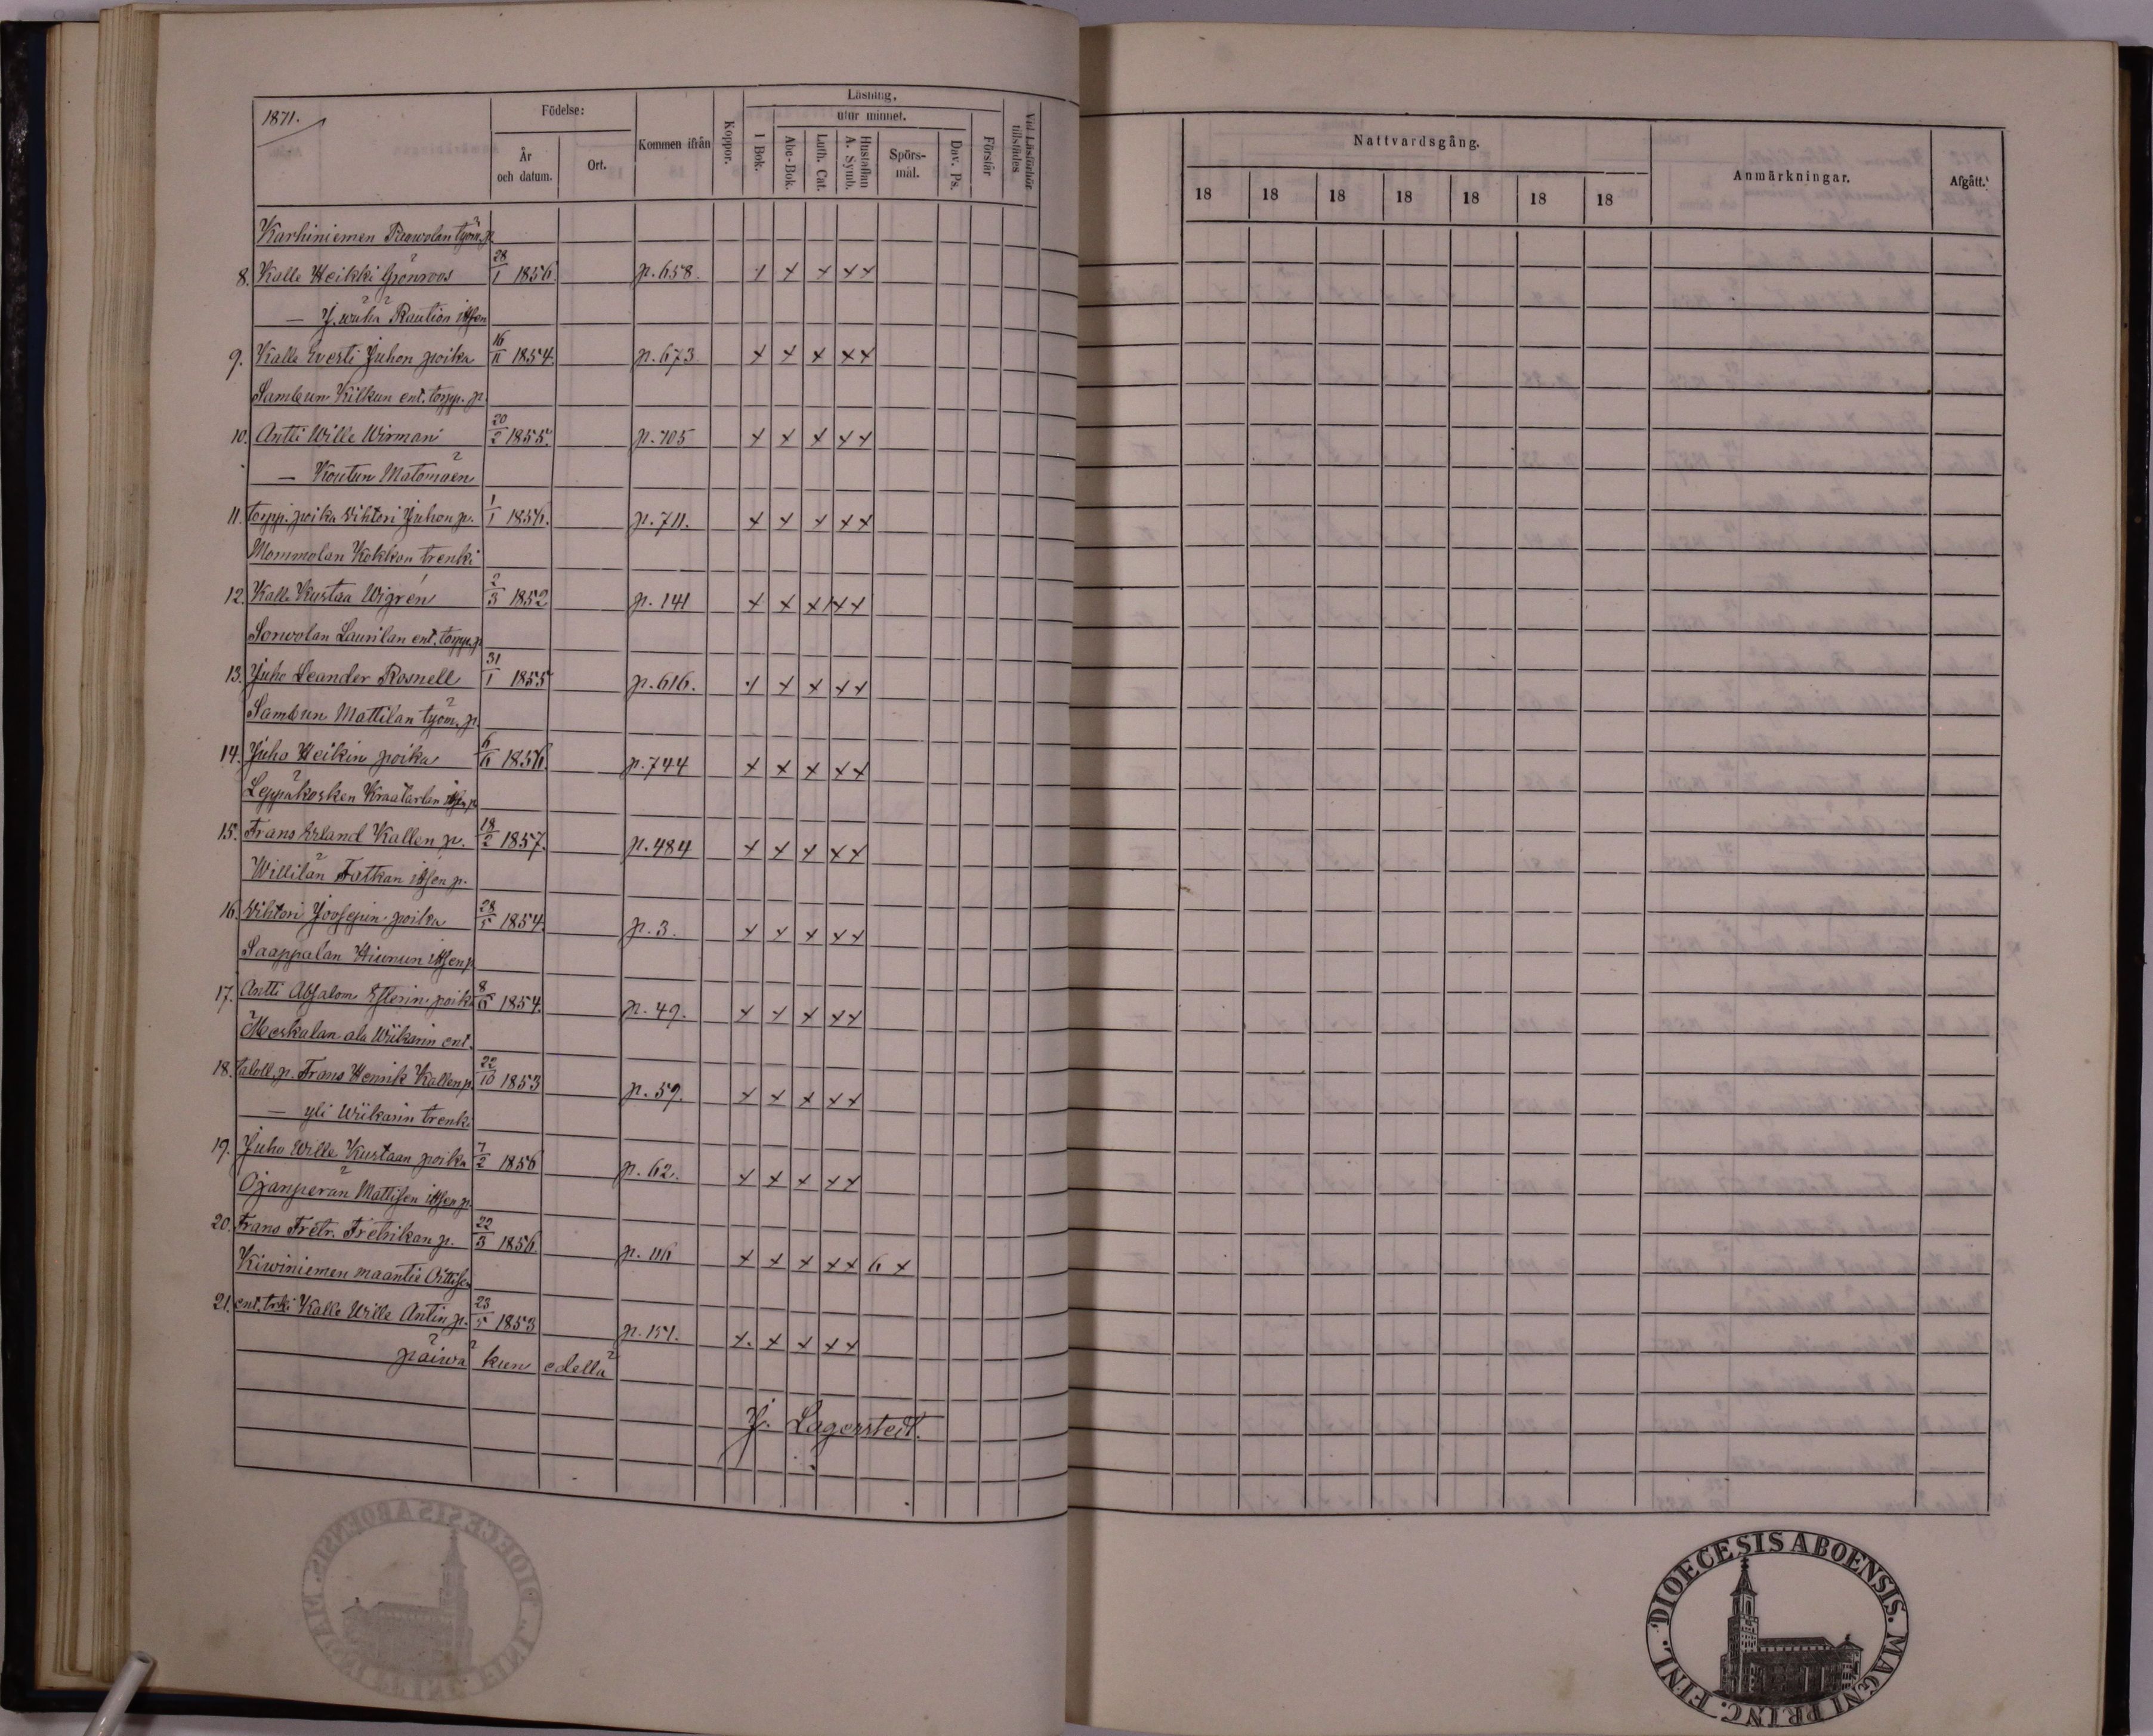 1871.
Födelse:
År och datum.
Ort.
Kommen ifrån
Koppor.
Läsning.
utur minnet.
I Bok.
Abc-Bok.
Luth. Cat.
Hustaflan A. Symb.
Spörs-mål.
Dav. Ps.
Förstår
Vid Läsförhör tillstädes
Nattvardsgång.
18 18 18 18 18 18 18
Anmärkningar.
Afgått.
Karhiniemen työm. p.
8. Kalle Heikki Grönroos 28/1 1856. p. 658. x x x x x
— Raution itsen
9. Kalle Evesti Juhon poika 16/11 1854. p. 673. x x x x x
Sambun Kilkun ent. torpp. p.
10. Antti Wille Wirman 20/2 1855. p. 705 x x x x x
— Koutun Matomäen
11. torpp. poika Vihtori Juhon p. 1/1 1856. p. 711. x x x x x
Mommolan Kokkon trenki
12. Kalle Kustaa Wigrén 2/3 1852 p. 141 x x x x x
Sorwolan Laurilan ent. torpp. p.
13. Juho Leander Rosnell 31/1 1855 p. 616. x x x x x
Sambun Mattilan työm. p.
14. Juho Heikin poika 6/6 1856. p. 744 x x x x x
Leppäkosken Kraatarlan itsen p.
15. Frans Erland Kallen p. 18/2 1857. p. 484 x x x x x
Willilän itsen p.
16. Vihtori Joosepin poika 28/5 1854. p. 3. x x x x x
Saappalan itsen p.
17. Antti Absalom Esterin poika 8/6 1854. p. 49. x x x x x
Meskalan ala Wiikarin ent.
18. taloll. p. Frans Henrik Kallen p. 22/10 1853 p. 59. x x x x x
— yli Wiikarin trenki
19. Juho Wille Kustaan poika 7/2 1856 p. 62. x x x x x
Ojanperän Mattisen itsen p.
20. Frans Fretr. Fretrikan p. 22/3 1856. p. 116 x x x x x 6 x
Kiwiniemen maantie
21. ent. trki Kalle Wille Antin p. 23/5 1853 p. 151. x x x x x
päiwä kun edellä
J. Lagerstedt.
DIOECESIS ABOENSIS. MAGNI PRINC. FINL.